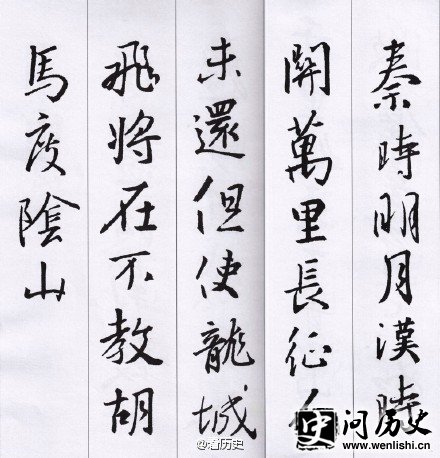 秦時明月漢時
關萬里長征人
未還但使龍城
飛將在不教胡
馬度陰山
@看历史
问历史
www.wenlishi.cn